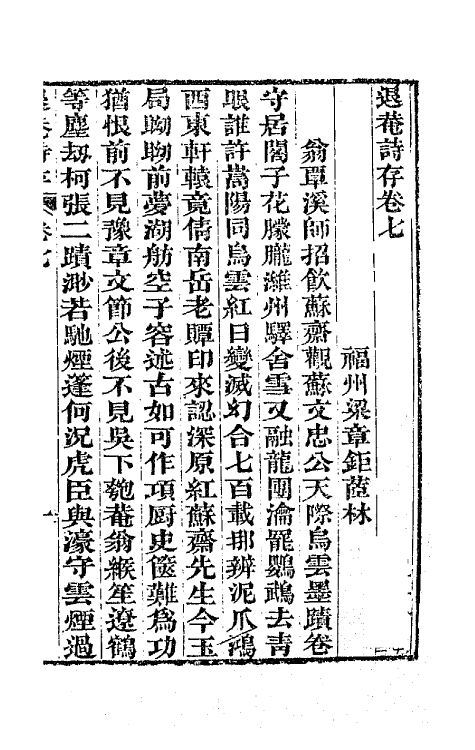 退菴詩存卷七
福州梁章鉅茝林
翁覃溪師招飲蘇齋觀蘇文忠公天際烏雲墨蹟卷
守居閣子花朦朧濰州驛舍雪又融龍團瀹罷鸚鵡去青
眼誰許嵩陽同烏雲紅日變滅幻合七百載挪辨泥爪鴻
西東軒轅竟倩南岳老贉印來認深原紅蘇齋先生今玉
局眑眑前夢湖舫空子容述古如可作項廚史篋難為功
猶恨前不見豫章文節公後不見吳下匏菴翁緱笙遼鶴
等塵刼柯張二蹟渺若馳煙蓬何況虎臣與濠守雲煙過
退巷詩存 卷七 一